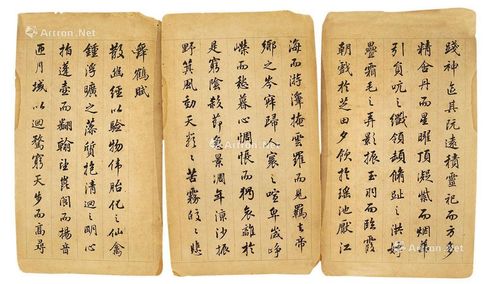 舞鶴賦
散幽經以驗物偉胎化之仙禽
鍾浮曠之藻質抱清迥之明心
指蓬壺而翻翰望崑閬而揚音
迊日域以迴騖窮天步而高尋
踐神區其既遠積靈祀而方多
精含丹而星曜頂凝紫而烟華
引員吭之纖頷頓脩趾之洪姱
疊霜毛之弄影振玉羽而臨霞
朝戲於芝田夕飲於瑤池厭江
海而游澤掩雲羅而見羈去帝
鄉之岑寂歸人寰之喧卑歲崢
嶸而愁暮心惆悵而猶哀離於
是窮陰殺節急景凋年涼沙振
野箕風動天嚴〻之苦霧皎〻之悲
Artron.Net
Artron.Net
Artron.Net